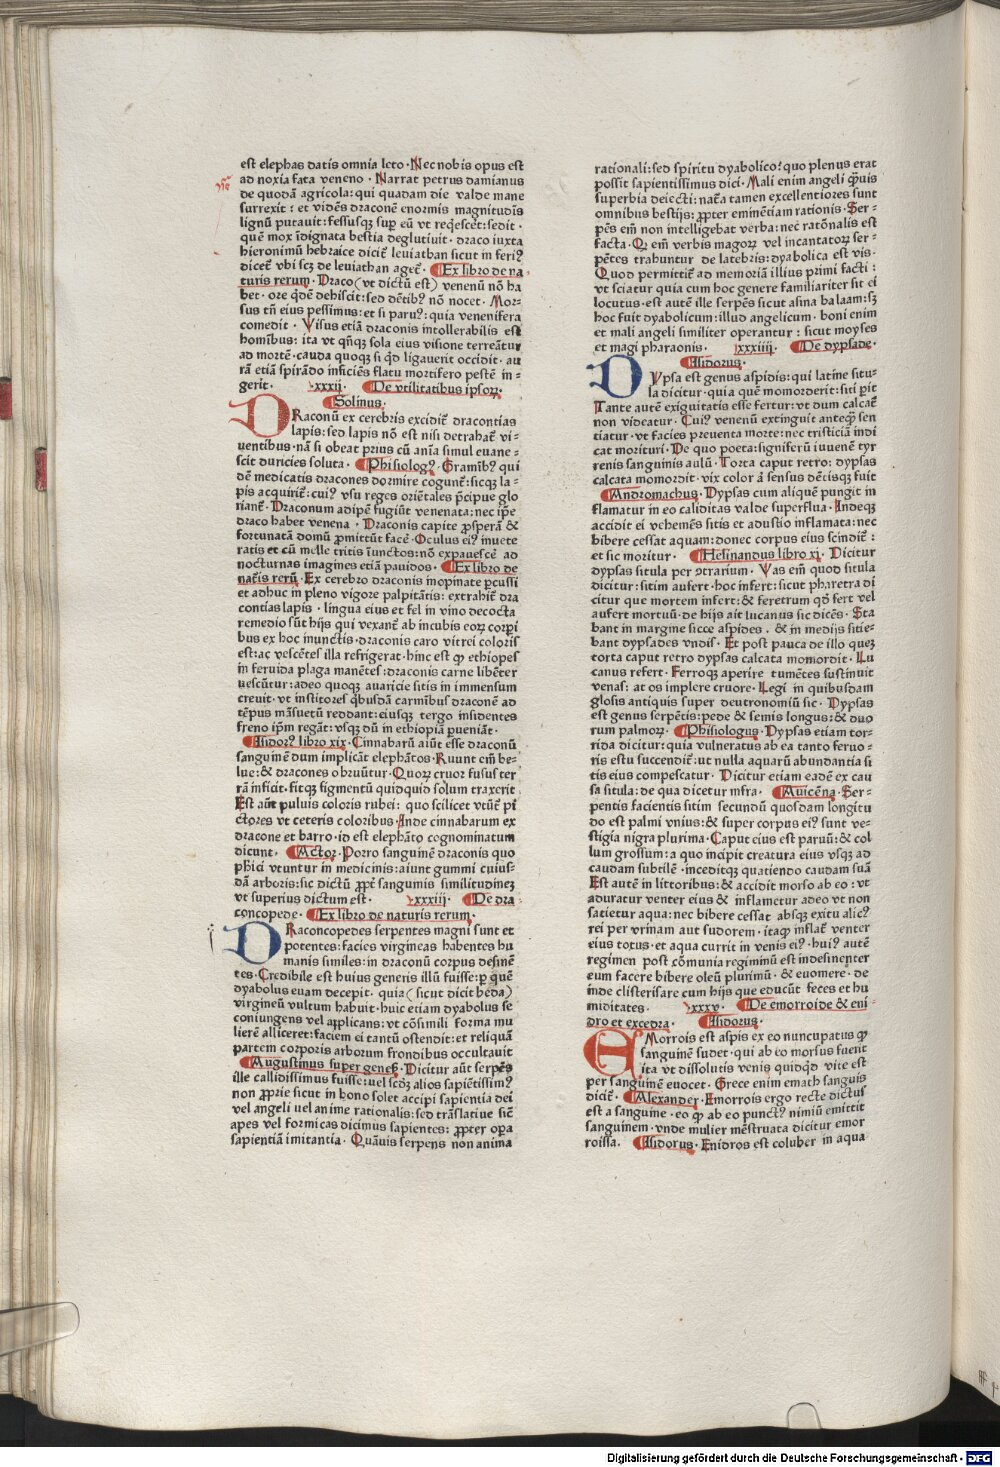 est elephas datis omnia leto · Nec nobis opus est
ad noxia fata veneno · Narrat petrus damianus
de quodā agricola: qui quadam die valde mane
surrexit: et vidēs draconē enormis magnitudīs
lignū putauit: fessusqꝫ sup̱ eū vt reqescet: sedit ·
quē mox īdignata bestia deglutiuit · draco iuxta
hieronimū hebraice dicit̄ leuiathan sicut in feriꝰ
dicet̄ vbi scꝫ de leuiathan aget̄ · Ex libro de na
turis rerum · Draco (vt dictū est) venenū nō ha
bet · ore qdē dehiscit: sed dētibꝰ nō nocet · Mor⸗
sus tn̄ eius pessimus: et si paruꝰ: quia venenifera
comedit · Visus etiā draconis intollerabilis est
homībus: ita vt qn̄qꝫ sola eius visione terreātur
ad mortē · cauda quoqꝫ si qd ligauerit occidit · au
rā etiā spirādo inficiēs flatu mortifero pestē in⸗
gerit · xxxij · De vtilitatibus ipsoꝝ ·
Solinus ·
DRaconū ex cerebris excidit̄ dracontias
lapis: sed lapis nō est nisi detrahat̄ vi⸗
uentibus · nā si obeat prius cū anīa simul euane⸗
scit duricies soluta · Phisiologꝰ · Gramībꝰ qui
dē medicatis dracones dormire cogunt̄: sicqꝫ la⸗
pis acquirit̄: cuiꝰ vsu reges oriētales p̄cipue glo
riant̄ · Draconum adipē fugiūt venenata: nec ip̄e
draco habet venena · Draconis capite ꝓsperā &
fortunatā domū ꝓmittūt facē · Oculus eiꝰ inuete
ratis et cū melle tritis īunctos: nō expauescē ad
nocturnas imagines etiā pauidos · Ex libro de
nat̄is rerū · Ex cerebro draconis inopinate ꝑcussi
et adhuc in pleno vigore palpitātis: extrahit̄ dra
contias lapis · lingua eius et fel in vino decocta
remedio sūt hijs qui vexant̄ ab incubis eoꝝ corꝑi
bus ex hoc inunctis · draconis caro vitrei coloris
est: ac vescētes illa refrigerat · hinc est ꝙ ethiopes
in feruida plaga manētes: draconis carne libēter
vescūtur: adeo quoqꝫ auaricie sitis in immensum
creuit · vt institores qbusdā carmībus draconē ad
tēpus māsuetū reddant: eiusqꝫ tergo insidentes
freno ip̄m regāt: vsqꝫ dū in ethiopiā ꝑueniāt ·
Isidorꝰ libro xix · Cinnabarū aiūt esse draconū
sanguinē dum implicāt elephātos · Ruunt em̄ be⸗
lue: & dracones obruūtur · Quoꝝ cruor fusus ter
rā inficit · fitqꝫ figmentū quidquid solum traxerit
Est aūt puluis coloris rubei: quo scilicet vtūt̄ pi
ctores vt ceteris coloribus · Inde cinnabarum ex
dracone et barro · id est elephāto cognominatum
dicunt · Actor · Porro sanguinē draconis quo
phīci vtuntur in medicinis: aiunt gummi cuius⸗
dā arboris: sic dictū ꝓpt̄ sangumis similitudineꝫ
vt superius dictum est · xxxiij · De dra
concopede · Ex libro de naturis rerum ·
DRaconcopedes serpentes magni sunt et
potentes: facies virgineas habentes hu
manis similes: in draconū corpus desinē
tes · Credibile est huius generis illū fuisse: ꝑ quē
dyabolus euam decepit · quia (sicut dicit beda)
virgineū vultum habuit · huic etiam dyabolus se
coniungens vel applicans: vt cōsimili forma mu
lierē alliceret: faciem ei tantū ostendit: et reliquā
partem corporis arborum frondibus occultauit
Augustinus super genes̄ · Dicitur aūt serpēs
ille callidissimus fuisse: vel scdꝫ alios sapiētissimꝰ
non ꝓprie sicut in bono solet accipi sapientia dei
vel angeli vel anime rationalis: sed trāslatiue sic̄
apes vel formicas dicimus sapientes: ꝓpter oꝑa
sapientiā imitantia · Quāuis serpens non anima
rationali: sed spiritu dyabolico: quo plenus erat
possit sapientissimus dici · Mali enim angeli qͣuis
superbia deiecti: nat̄a tamen excellentiores sunt
omnibus bestijs: ꝓpter eminētiam rationis · Ser⸗
pēs em̄ non intelligebat verba: nec ratōnalis est
facta · Qꝫ em̄ verbis magoꝝ vel incantatoꝝ ser⸗
pētes trahuntur de latebris: dyabolica est vis ·
Quod permittit̄ ad memoriā illius primi facti:
vt sciatur quia cum hoc genere familiariter sit ei
locutus · est autē ille serpēs sicut asina balaam: sꝫ
hoc fuit dyabolicum: illud angelicum · boni enim
et mali angeli similiter operantur: sicut moyses
et magi pharaonis · xxxiiij · De dypsade ·
Isidorus ·
DYpsa est genus aspidis: qui latine situ⸗
la dicitur · quia quē momorderit: siti ꝑit
Tante autē exiguitatis esse fertur: vt dum calcat̄
non videatur · Cuiꝰ venenū extinguit anteqͣꝫ sen
tiatur · vt facies preuenta morte: nec tristiciā indi
cat morituri · De quo poeta: signiferū iuuenē tyr
renis sanguinis aulū · Torta caput retro: dypsas
calcata momordit · vix color ā sensus dētisqꝫ fuit
Andromachus · Dypsas cum aliquē pungit in
flamatur in eo caliditas valde superflua · Indeqꝫ
accidit ei vehemēs sitis et adustio inflamata: nec
bibere cessat aquam: donec corpus eius scindit̄:
et sic moritur · Helinandus libro xj · Dicitur
dypsas situla per ꝯtrarium · Vas em̄ quod situla
dicitur: sitim aufert · hoc infert: sicut pharetra di
citur que mortem infert: & feretrum qd̄ fert vel
aufert mortuū · de hijs ait lucanus sic dicēs · Sta
bant in margine sicce aspides · & in medijs sitie⸗
bant dypsades vndis · Et post pauca de illo queꝫ
torta caput retro dypsas calcata momordit · Lu
canus refert · Ferroqꝫ aperire tumētes sustinuit
venas: at os implere cruore · Legi in quibusdam
glosis antiquis super deutronomiū sic · Dypsas
est genus serpētis: pede & semis longus: & duo
rum palmoꝝ · Phisiologus · Dypsas etiam tor⸗
rida dicitur: quia vulneratus ab ea tanto feruo⸗
ris estu succendit̄: ut nulla aquarū abundantia si
tis eius compescatur · Dicitur etiam eadē ex cau
sa situla: de qua dicetur infra · Auicēna · Ser⸗
pentis facientis sitim secundū quosdam longitu
do est palmi vnius: & super corpus eiꝰ sunt ve⸗
stigia nigra plurima · Caput eius est paruū: & col
lum grossum: a quo incipit creatura eius vsqꝫ ad
caudam subtilē · inceditqꝫ quatiendo caudam suā
Est autē in littoribus: & accidit morso ab eo: vt
aduratur venter eius & inflametur adeo vt non
satietur aqua: nec bibere cessat absqꝫ exitu alicꝰ
rei per vrinam aut sudorem · itaqꝫ inflat̄ venter
eius totus · et aqua currit in venis eiꝰ · huiꝰ autē
regimen post cōmunia regiminū est indesinenter
eum facere bibere oleū plurimū · & euomere · de
inde clisterisare cum hijs que educūt feces et hu
miditates · xxxv · De emorroide & eni⸗
dro et excedra · Isidorus ·
EMorrois est aspis ex eo nuncupatus ꝙ
sanguinē sudet · qui ab eo morsus fuerit
ita vt dissolutis venis quidqd vite est
per sanguinē euocet · Grece enim emath sanguis
dicit̄ · Alexander · Emorrois ergo recte dictus
est a sanguine · eo ꝙ ab eo punctꝰ nimiū emittit
sanguinem · vnde mulier mēstruata dicitur emor
roissa · Isidorus · Enidros est coluber in aqua
Digitalisierung gefördert durch die Deutsche Forschungsgemeinschaft · DFG